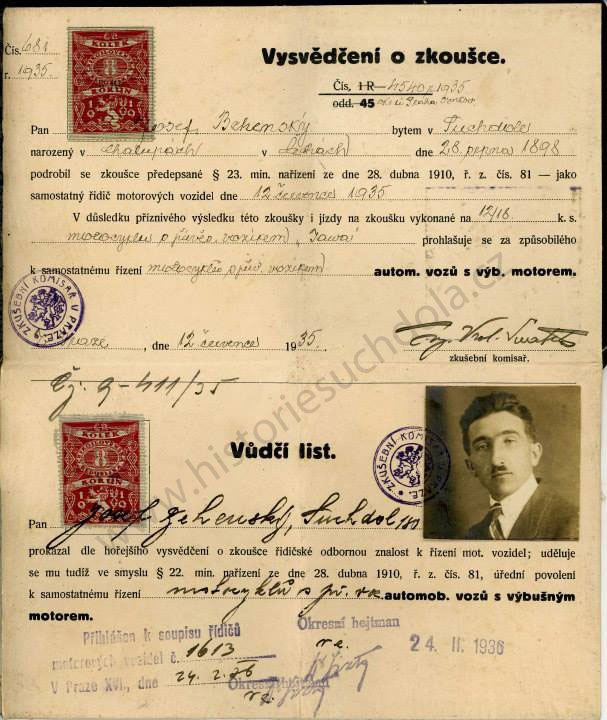 Čís. 681
r. 1935.
KOLEK
8
KORUN
Vysvědčení o zkoušce.
Čís. I R — 4540 z 1935
odd. 45
Pan Josef Behenský bytem v Suchdole
narozený v Chalupách v Čechách dne 28. srpna 1898
podrobil se zkoušce předepsané § 23. min. nařízení ze dne 28. dubna 1910, ř. z. čís. 81 — jako
samostatný řidič motorových vozidel dne 12. července 1935
V důsledku příznivého výsledku této zkoušky i jízdy na zkoušku vykonané na 12/18 k. s.
motocyklu s přívěs. vozíkem „Jawa" prohlašuje se za způsobilého
k samostatnému řízení motocyklů s přív. vozíkem autom. vozů s výb. motorem.
ZKUŠEBNÍ KOMISAŘ V PRAZE
Praze, dne 12. července 1935.
zkušební komisař.
Čj. 9-411/35
KOLEK
8
KORUN
Vůdčí list.
ZKUŠEBNÍ KOMISAŘ V PRAZE
Pan Josef Behenský, Suchdol
prokázal dle hořejšího vysvědčení o zkoušce řidičské odbornou znalost k řízení mot. vozidel; uděluje
se mu tudíž ve smyslu § 22. min. nařízení ze dne 28. dubna 1910, ř. z. čís. 81, úřední povolení
k samostatnému řízení motocyklů s př. voz. automob. vozů s výbušným
motorem.
Přihlášen k soupisu řidičů
motorových vozidel č. 1613
V Praze XVI., dne 24. 2. 36
Okresní hejtman
r. z.
24. II. 1936
Okresní hejtman
r. z.
www.historiesuchdola.cz